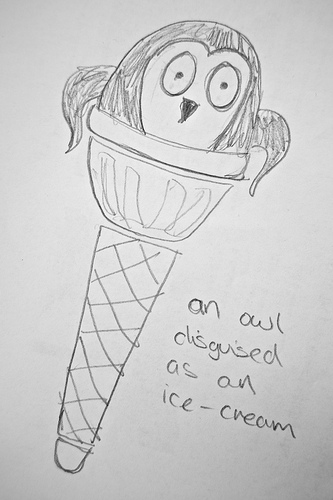 an owl
disguised
as an
ice-cream